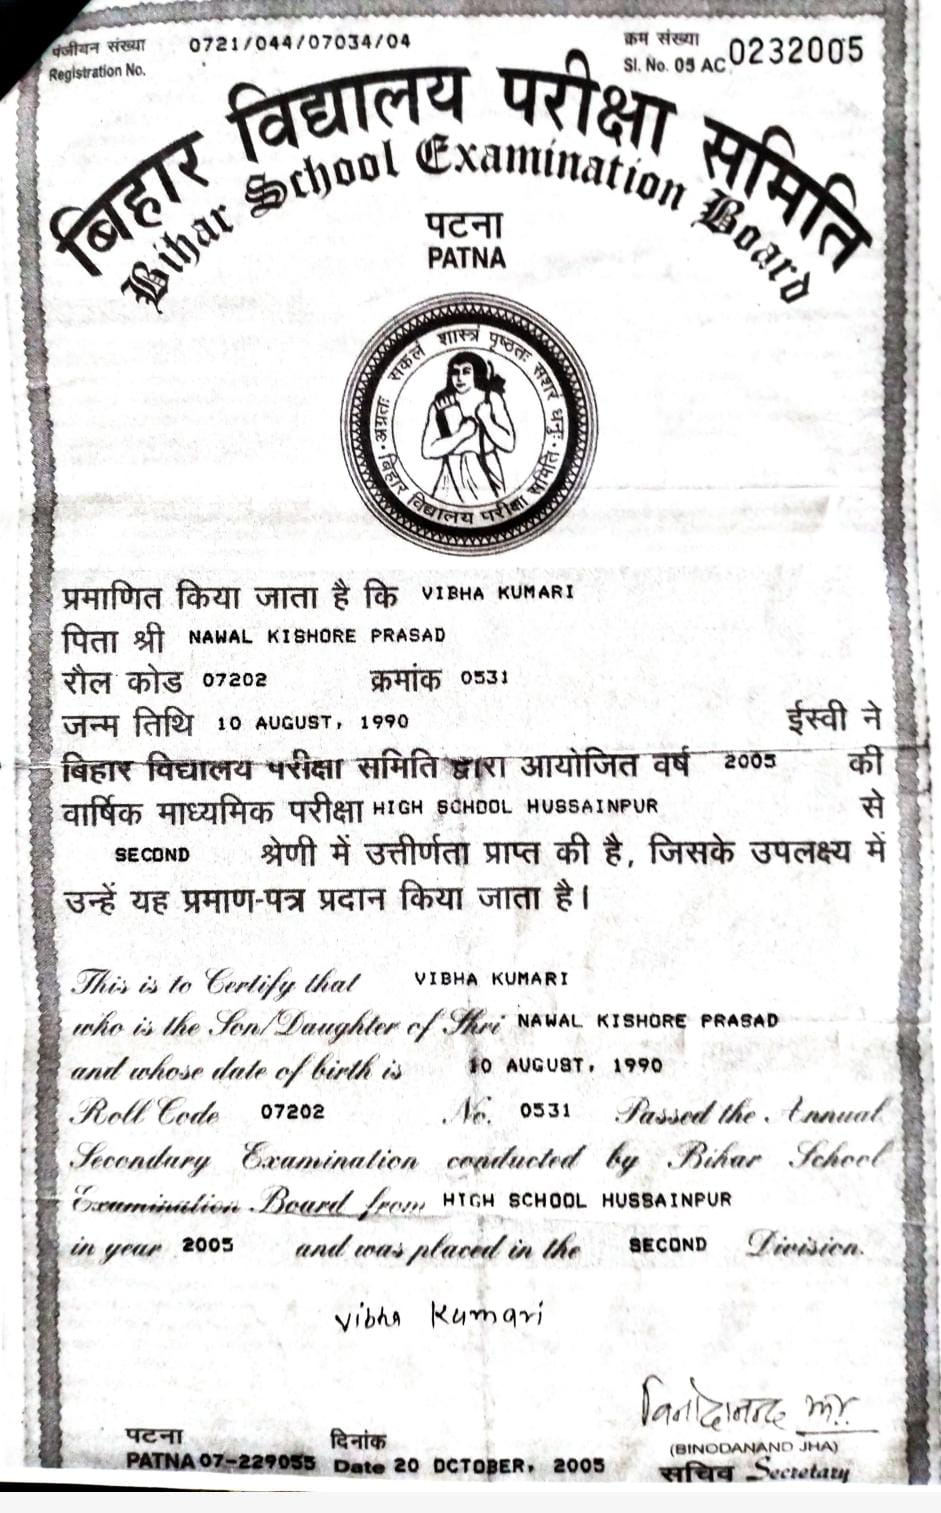 पंजीयन संख्या 0721/044/07034/04 क्रम संख्या
Registration No. Sl. No. 05 AC 0232005
बिहार विद्यालय परीक्षा समिति
Bihar School Examination Board
पटना
PATNA
अग्रतः सकलं शास्त्रं पृष्ठतः सशरं धनुः
बिहार विद्यालय परीक्षा समिति
प्रमाणित किया जाता है कि VIBHA KUMARI
पिता श्री NAWAL KISHORE PRASAD
रौल कोड 07202 क्रमांक 0531
जन्म तिथि 10 AUGUST, 1990 ईस्वी ने
बिहार विद्यालय परीक्षा समिति द्वारा आयोजित वर्ष 2005 की
वार्षिक माध्यमिक परीक्षा HIGH SCHOOL HUSSAINPUR से
SECOND श्रेणी में उत्तीर्णता प्राप्त की है, जिसके उपलक्ष्य में
उन्हें यह प्रमाण-पत्र प्रदान किया जाता है।
This is to Certify that VIBHA KUMARI
who is the Son/Daughter of Shri NAWAL KISHORE PRASAD
and whose date of birth is 10 AUGUST, 1990
Roll Code 07202 No. 0531 Passed the Annual
Secondary Examination conducted by Bihar School
Examination Board from HIGH SCHOOL HUSSAINPUR
in year 2005 and was placed in the SECOND Division.
Vibha Kumari
विनोदानन्द झा
(BINODANAND JHA)
पटना दिनांक
PATNA 07-229055 Date 20 OCTOBER, 2005 सचिव Secretary